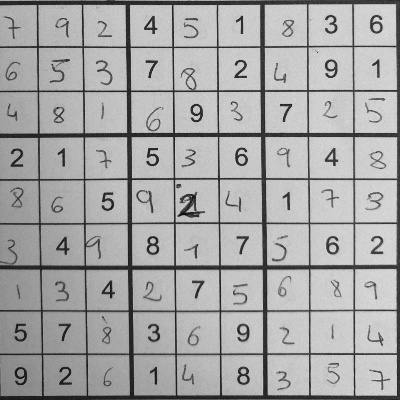 7 9 2 4 5 1 8 3 6
6 5 3 7 8 2 4 9 1
4 8 1 6 9 3 7 2 5
2 1 7 5 3 6 9 4 8
8 6 5 9 2 4 1 7 3
3 4 9 8 1 7 5 6 2
1 3 4 2 7 5 6 8 9
5 7 8 3 6 9 2 1 4
9 2 6 1 4 8 3 5 7